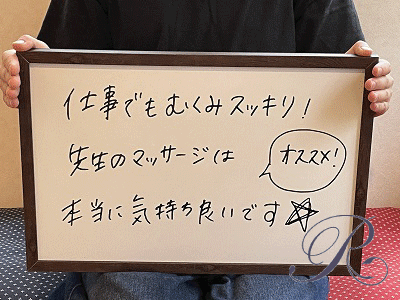 仕事でもむくみスッキリ!
先生のマッサージは
オススメ!
本当に気持ち良いです☆
R